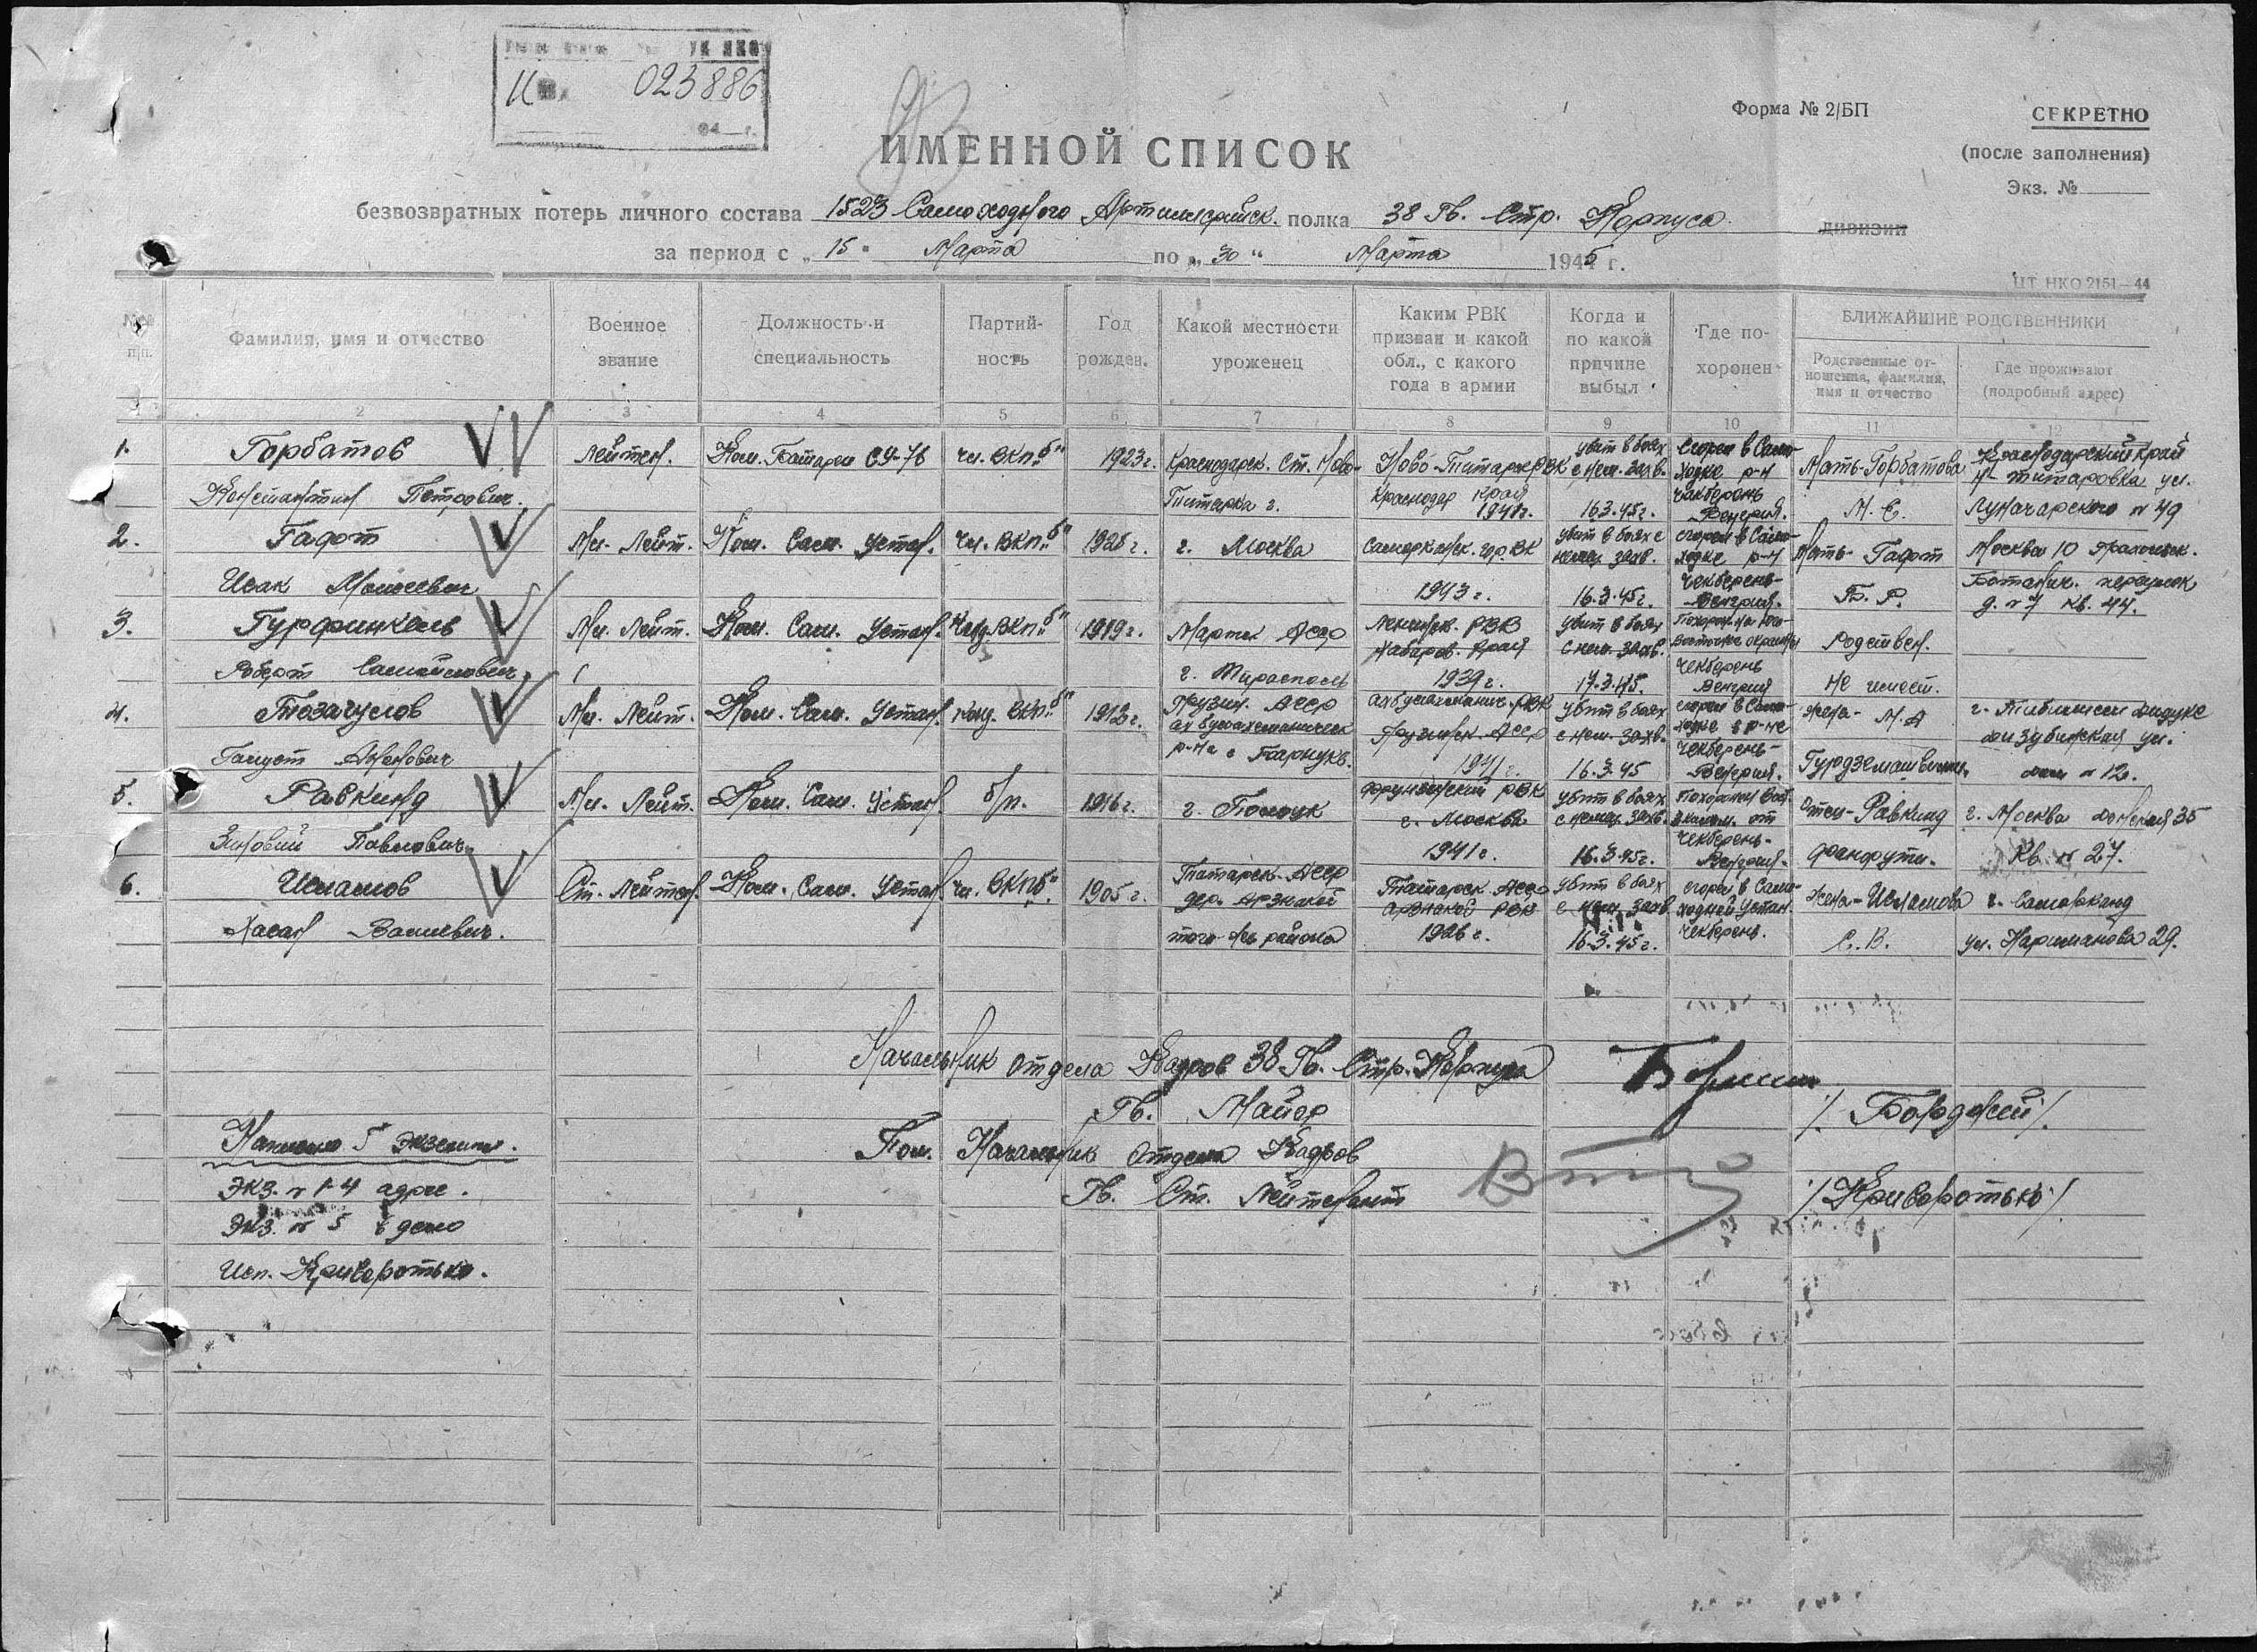 УК НКО
023886
Форма № 2/БП
СЕКРЕТНО
(после заполнения)
Экз. №
ИМЕННОЙ СПИСОК
безвозвратных потерь личного состава 1523 Самоходного Артиллерийск. полка 38 Гв. Стр. Корпуса дивизии
за период с „15" Марта по „30" Марта 1945 г.
ЦТ НКО 2151—44
№№ п/п.
Фамилия, имя и отчество
Военное звание
Должность и специальность
Партий-ность
Год рожден.
Какой местности уроженец
Каким РВК призван и какой обл., с какого года в армии
Когда и по какой причине выбыл
Где по-хоронен
БЛИЖАЙШИЕ РОДСТВЕННИКИ
Родственные от-ношения, фамилия, имя и отчество
Где проживают (подробный адрес)
1 2 3 4 5 6 7 8 9 10 11 12
1. Горбатов Лейтен. Ком. Батареи СУ-76 чл. ВКП"б" 1923 г. Краснодарск. Ст. Ново- Ново-Титарск РВК убит в боях с нем. захв. сгорел в Само- ходке р-н Мать-Горбатова Краснодарский край
Константин Петрович. Титарка г. Краснодар края 1941 г. 16.3.45 г. Чакберень Венгрия. М. Е. Н-титаровка ул. Луначарского № 49
2. Гафт Мл. Лейт. Ком. Сам. Устан. чл. ВКП"б" г. Москва Самаркандск. гор. ВК убит в боях с немец. захв. сгорел в Само- ходке р-н Мать-
Исак Моисеевич 1943 г. 16.3.45 г. Чекберень- Венгрия. Б. Р. Москва 10 Ботанич. переулок д. № 7 кв. 44.
3. Гурфинкель Мл. Лейт. Ком. Сам. Устан. Канд. ВКП"б" 1919 г. АССР Ленинск. РВК Хабаров. края убит в боях с нем. захв. Родствен.
Роберт Самойлович г. Тирасполь 1939 г. 17.3.45. Чекберень Венгрия не имеет.
4. Мл. Лейт. Ком. Сам. Устан. канд. ВКП"б" Грузин. АССР РВК Грузинск. АССР убит в боях с нем. захв. сгорел в Само- ходке в р-не жена- М. А г. Тибилиси Дидубе
р-на с. 1941 г. 16.3.45 Чекберень- Венгрия. ул. дом № 12.
5. Равкинд Мл. Лейт. Ком. Сам. Устан. б/п. 1916 г. г. Фрунзенский РВК г. Москва убит в боях с немец. захв. от Отец-Равкинд г. Москва Донская 35
Зиновий Павлович. 1941 г. 16.3.45 г. Чекберень- Венгрия. кв. № 27.
6. Исламов Ст. Лейтен. Ком. Сам. Устан. чл. ВКПб" 1905 г. Татарск. АССР дер. Татарск. АССР РВК убит в боях с нем. захв. сгорел в Само- ходной Устан. жена-Исламова г. Самарканд
Хасан Валиевич. того-же района 1926 г. 16.3.45 г. Чекберень. С. В. ул. Нариманова 29.
Начальник отдела Кадров 38 Гв. Стр. Корпуса
Гв. Майор
Пом. Начальник отдела Кадров
Гв. Ст. Лейтенант /Криворотько/
5 экземпл.
Экз. № 1-4
Экз. № 5 в дело
Исп. Криворотько.